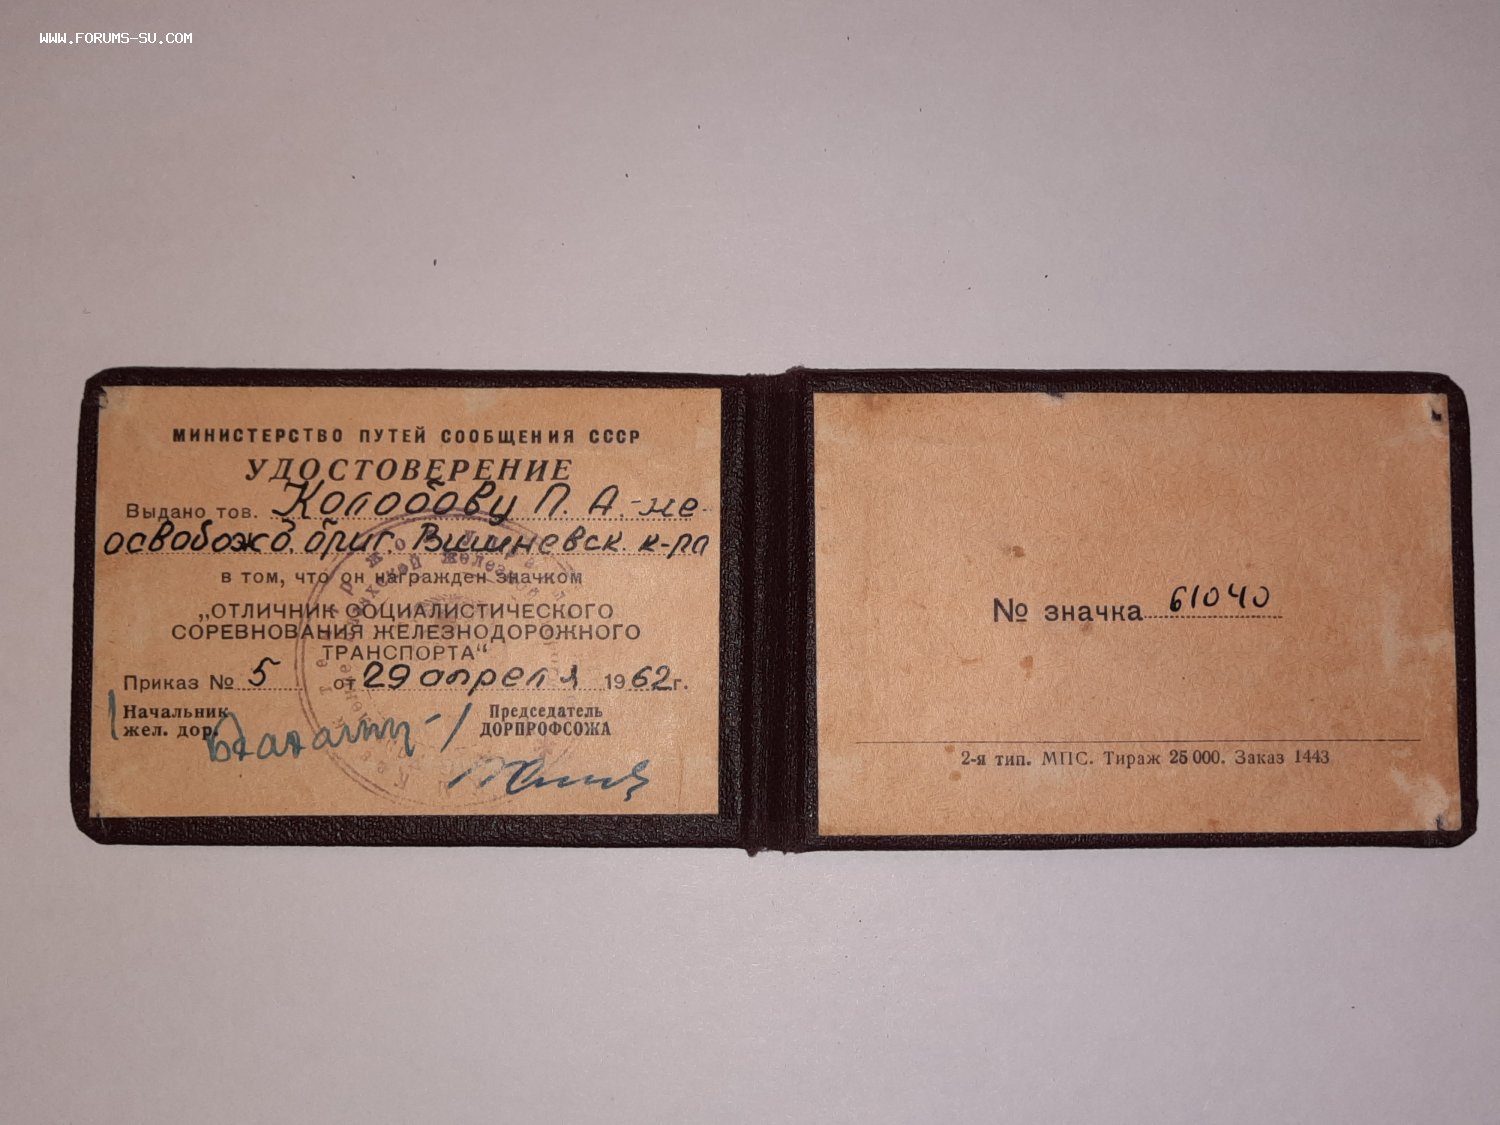 WWW.FORUMS-SU.COM
МИНИСТЕРСТВО ПУТЕЙ СООБЩЕНИЯ СССР
УДОСТОВЕРЕНИЕ
Выдано тов. Колобову П. А. - не-
освобожд. бриг. Вишневск. к-ра
в том, что он награжден значком
„ОТЛИЧНИК СОЦИАЛИСТИЧЕСКОГО
СОРЕВНОВАНИЯ ЖЕЛЕЗНОДОРОЖНОГО
ТРАНСПОРТА“
Приказ № 5 от 29 апреля 1962 г.
Начальник
жел. дор.
Председатель
ДОРПРОФСОЖА
№ значка 61040
2-я тип. МПС. Тираж 25 000. Заказ 1443